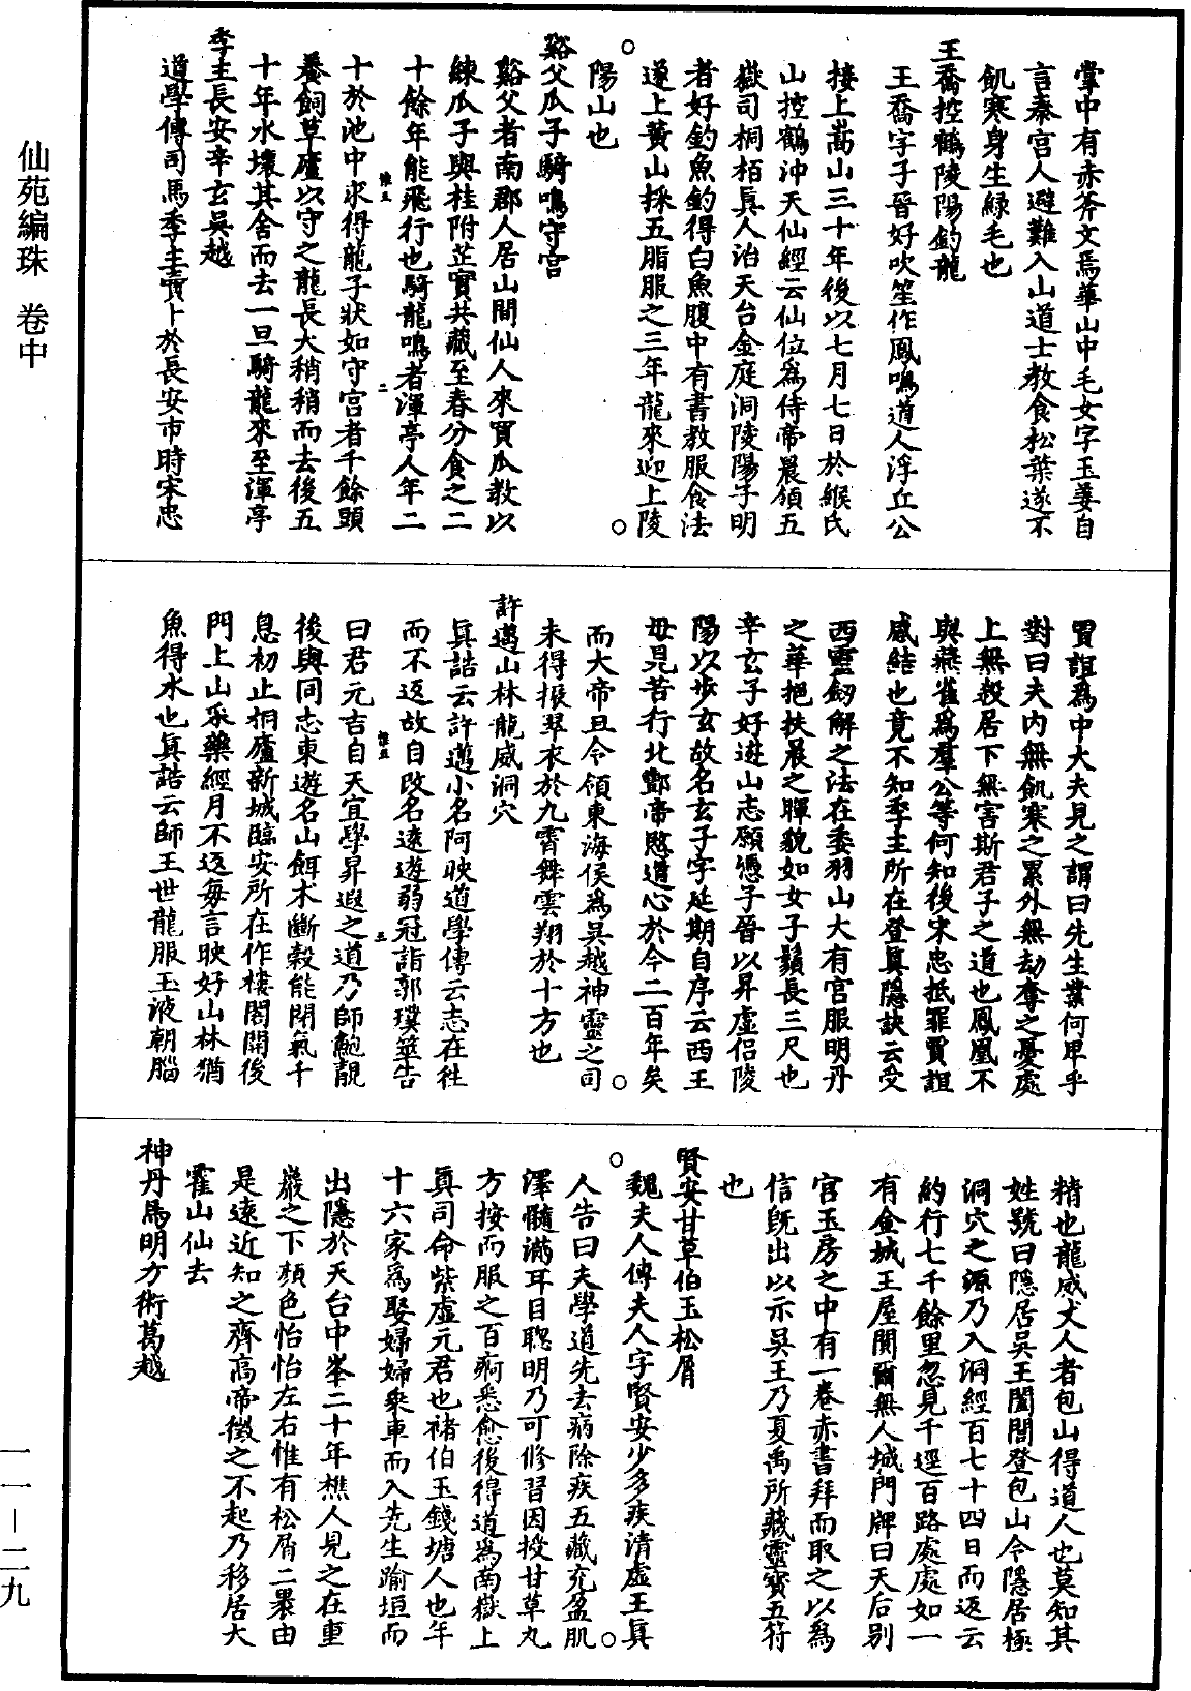 仙苑編珠　卷中
掌中有赤斧文焉華山中毛女字玉姜自
言秦宮人避難入山道士教食松葉遂不
飢寒身生緑毛也
王喬控鶴陵陽釣龍
王喬字子晉好吹笙作鳳鳴道人浮丘公
接上嵩山三十年後以七月七日於緱氏
山控鶴沖天仙經云仙位爲侍帝晨領五
嶽司桐栢眞人治天台金庭洞陵陽子明
者好釣魚釣得白魚腹中有書教服食法
遂上黃山採五脂服之三年龍來迎上陵
陽山也
谿父瓜子騎鳴守宮
谿父者南郡人居山間仙人來買瓜教以
練瓜子與桂附芷實共藏至春分食之二
十餘年能飛行也騎龍鳴者渾亭人年二
十於池中求得龍子狀如守宮者千餘頭
養飼草廬以守之龍長大稍稍而去後五
十年水壞其舍而去一旦騎龍來至渾亭
季主長安辛玄吳越
道學傳司馬季主賣卜於長安市時宋忠
賈誼爲中大夫見之謂曰先生業何卑乎
對曰夫内無飢寒之累外無劫奪之憂處
上無殺居下無害斯君子之道也鳳凰不
與燕雀爲羣公等何知後宋忠抵罪賈誼
感結也竟不知季主所在登眞隱訣云受
西靈劒解之法在委羽山大有宮服明丹
之華挹扶晨之暉貌如女子鬚長三尺也
辛玄子好遊山志願憑子晉以昇虛侣陵
陽以步玄故名玄子字延期自序云西王
母見苦行北酆帝愍道心於今二百年矣
而大帝且令領東海侯爲吳越神靈之司
未得振翠衣於九霄舞雲翔於十方也
許邁山林龍威洞穴
眞誥云許邁小名阿映道學傳云志在往
而不返故自改名遠遊弱冠詣郭璞筮告
曰君元吉自天宜學昇遐之道乃師鮑靚
後與同志東遊名山餌术斷穀能閉氣千
息初止桐廬新城臨安所在作樓閣開後
門上山采藥經月不返每言映好山林猶
魚得水也眞誥云師王世龍服玉液朝腦
精也龍威丈人者包山得道人也莫知其
姓號曰隱居吳王闔閭登包山令隱居極
洞穴之源乃入洞經百七十四日而返云
約行七千餘里忽見千逕百路處處如一
有金城玉屋闃爾無人城門牌曰天后別
宮玉房之中有一卷赤書拜而取之以爲
信旣出以示吳王乃夏禹所藏靈寶五符
也
賢安甘草伯玉松屑
魏夫人傳夫人字賢安少多疾清虛王眞
人告曰夫學道先去病除疾五藏充盈肌
澤髓滿耳目聰明乃可修習因授甘草丸
方按而服之百痾悉愈後得道爲南嶽上
眞司命紫虛元君也褚伯玉錢塘人也年
十六家爲娶婦婦乘車而入先生踰垣而
出隱於天台中峯二十年樵人見之在重
巖之下顏色怡怡左右惟有松屑二裹由
是遠近知之齊高帝徵之不起乃移居大
霍山仙去
神丹馬明方術葛越
一一－二九